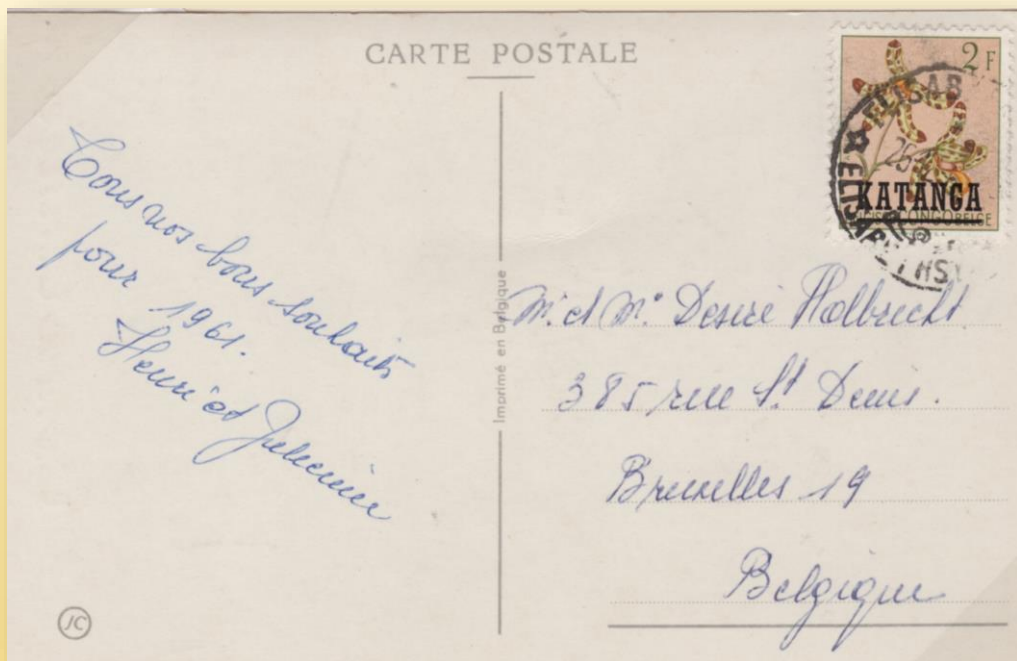 CARTE POSTALE
2 F
KATANGA
CONGO BELGE
ELISAB
ELISABETHSV
Tous nos bons souhaits
pour 1961.
Henri et
Imprimé en Belgique
Mr. et Me. Desiré Holbrecht
385 rue St Denis.
Bruxelles 19
Belgique
JC